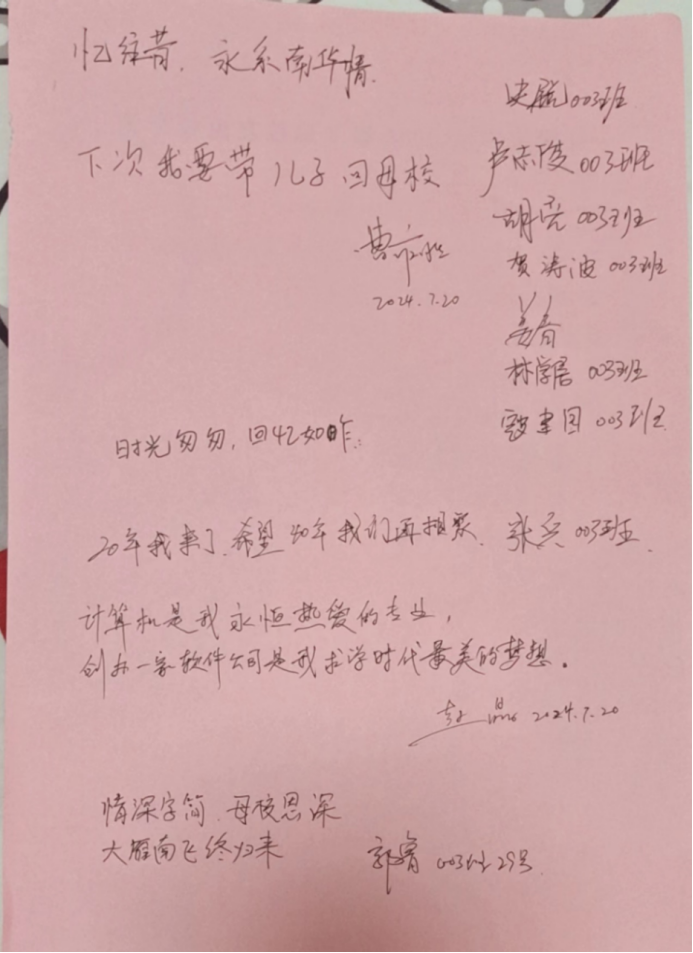 忆往昔、永系南华情
003班
下次我要带儿子回母校
卢志俊 003班
胡亮 003班
2024.7.20
贺涛波 003班
姜春
林学居 003班
时光匆匆,回忆如昨.
建国 003班
20年我来了.希望40年我们再相聚. 张兵 003班.
计算机是我永恒热爱的专业,
创办一家软件公司是我求学时代最美的梦想。
赵晶 2024.7.20
情深字简、母校恩深
大雁南飞终归来
郭睿 003班29号